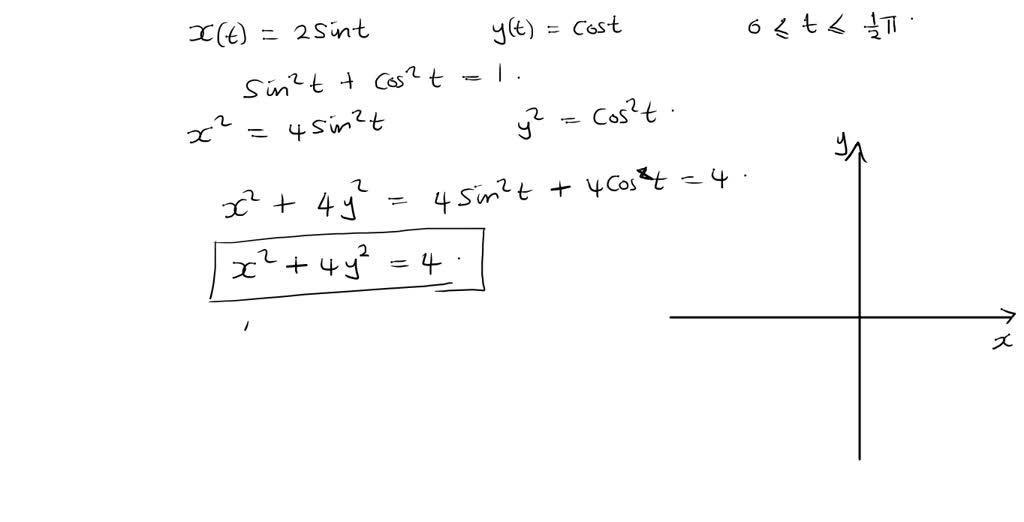 x(t) = 2 Sin t y(t) = Cos t 0 ≤ t ≤ ½π.
Sin²t + Cos²t = 1.
x² = 4 Sin²t y² = Cos²t.
x² + 4y² = 4 Sin²t + 4 Cos²t = 4.
x² + 4y² = 4.
y
x